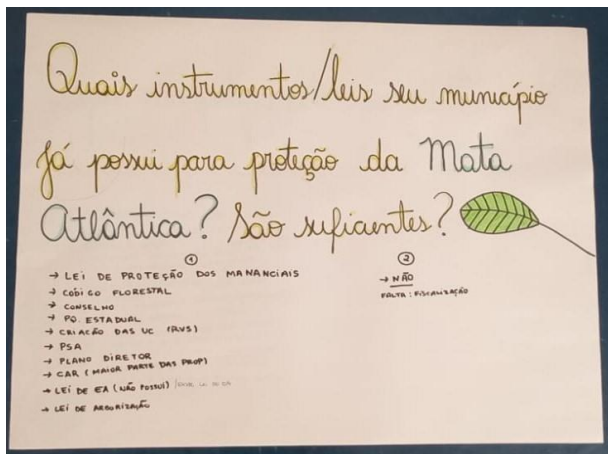 Quais instrumentos/leis seu município
já possui para proteção da Mata
Atlântica? São suficientes?
①
→ LEI DE PROTEÇÃO DOS MANANCIAIS
→ CÓDIGO FLORESTAL
→ CONSELHO
→ PQ. ESTADUAL
→ CRIAÇÃO DAS UC (RVS)
→ PSA
→ PLANO DIRETOR
→ CAR (MAIOR PARTE DAS PROP)
→ LEI DE EA (NÃO POSSUI)
→ LEI DE ARBORIZAÇÃO
②
→ NÃO
FALTA: FISCALIZAÇÃO